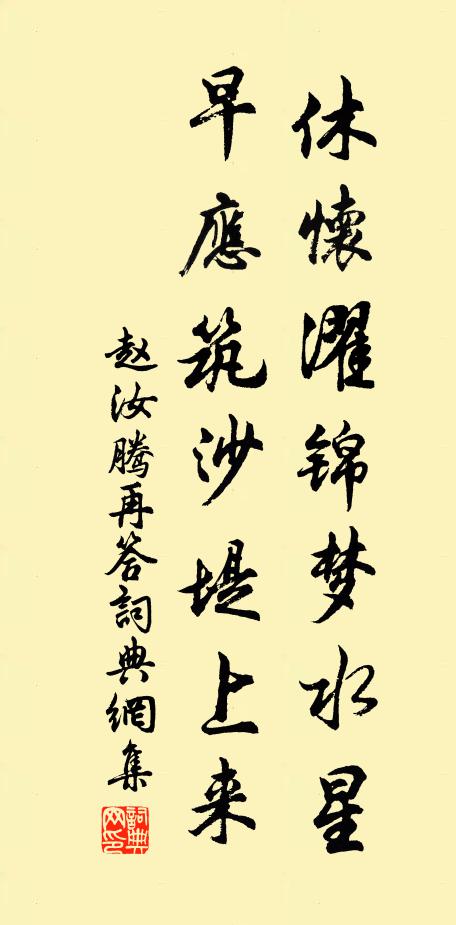 休懷濯锦梦水星
早應筑沙堤上来
赵汝腾再答詞典網集
詞典网印